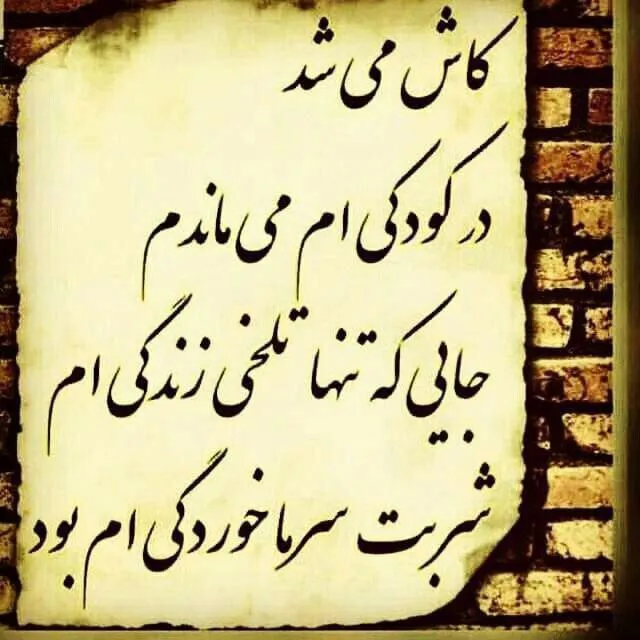 کاش می شد
در کودکی ام می ماندم
جایی که تنها تلخی زندگی ام
شربت سرما خوردگی ام بود